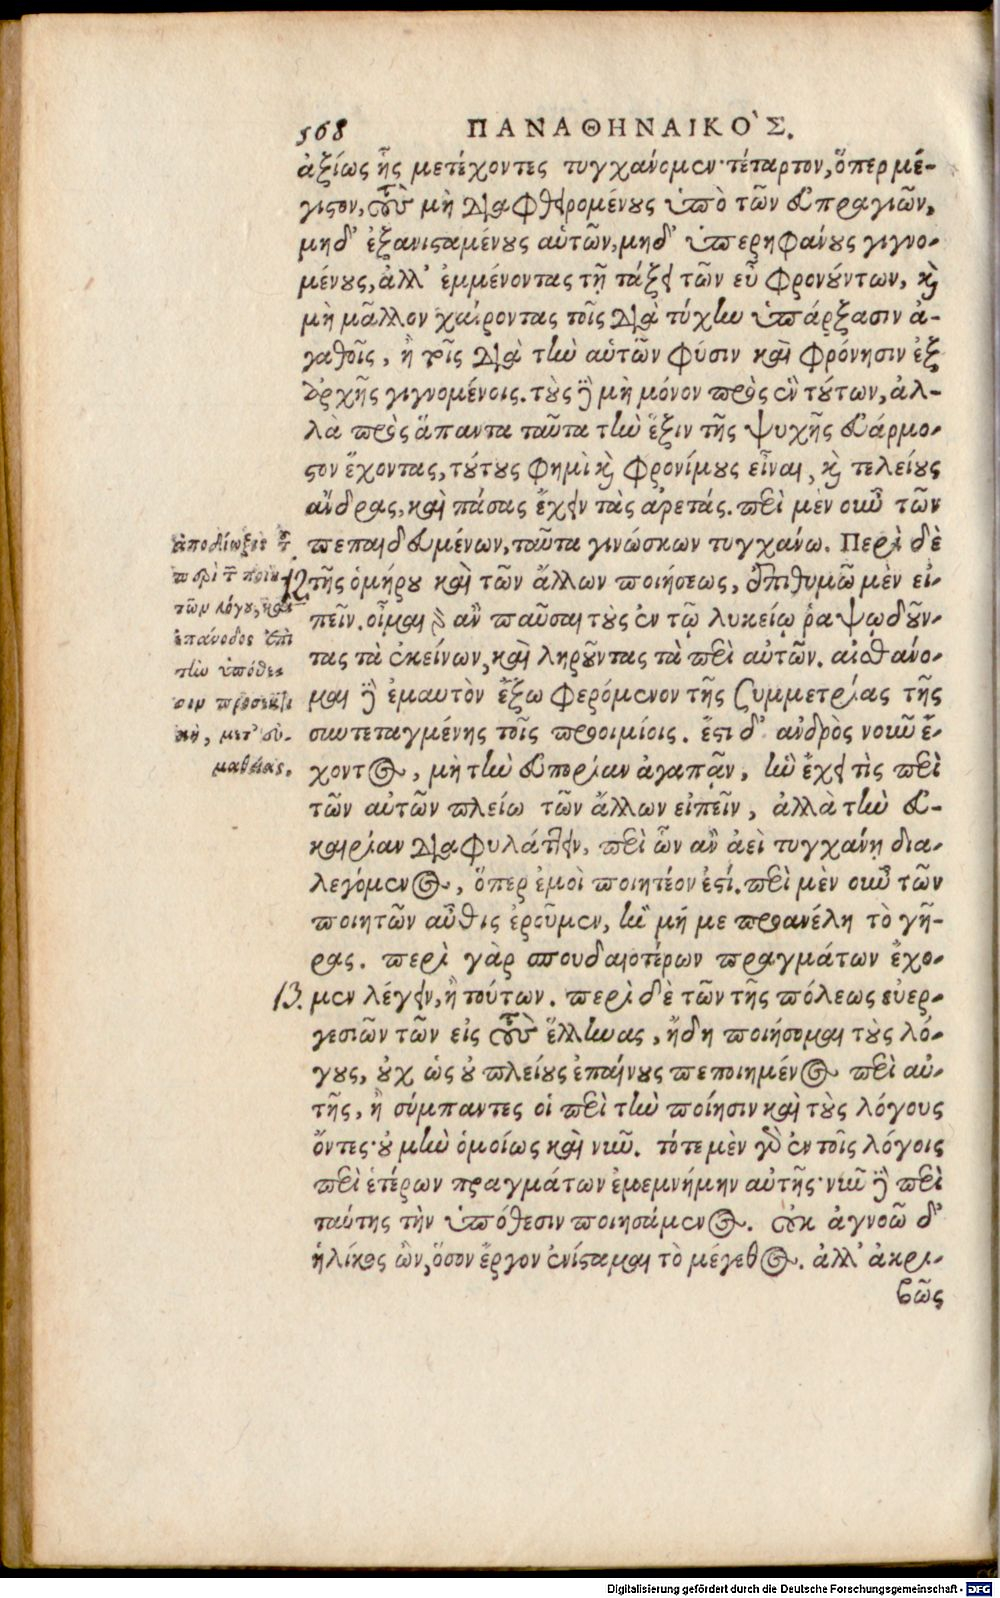 568 ΠΑΝΑΘΗΝΑΙΚΟ`Σ.
ἀξίως ἧς μετέχοντες τυγχάνομεν· τέταρτον, ὅπερ μέ-
γιστον, τοὺς μὴ διαφθειρομένους ὑπὸ τῶν εὐπραγιῶν,
μηδ' ἐξανισταμένους αὑτῶν, μηδ' ὑπερηφάνους γιγνο-
μένους, ἀλλ' ἐμμένοντας τῇ τάξει τῶν εὖ φρονούντων, καὶ
μὴ μᾶλλον χαίροντας τοῖς διὰ τύχην ὑπάρξασιν ἀ-
γαθοῖς, ἢ τοῖς διὰ τὴν αὑτῶν φύσιν καὶ φρόνησιν ἐξ
ἀρχῆς γιγνομένοις. τοὺς δὲ μὴ μόνον πρὸς ἓν τούτων, ἀλ-
λὰ πρὸς ἅπαντα ταῦτα τὴν ἕξιν τῆς ψυχῆς εὐάρμο-
στον ἔχοντας, τούτους φημὶ καὶ φρονίμους εἶναι, καὶ τελείους
ἄνδρας, καὶ πάσας ἔχειν τὰς ἀρετάς. περὶ μὲν οὖν τῶν
πεπαιδευμένων, ταῦτα γινώσκων τυγχάνω. Περὶ δὲ
12 τῆς ὁμήρου καὶ τῶν ἄλλων ποιήσεως, ἐπιθυμῶ μὲν εἰ-
πεῖν. οἶμαι γὰρ ἂν παῦσαι τοὺς ἐν τῷ λυκείῳ ῥαψῳδοῦν-
τας τὰ ἐκείνων, καὶ ληροῦντας τὰ περὶ αὐτῶν. αἰσθάνο-
μαι δὲ ἐμαυτὸν ἔξω φερόμενον τῆς συμμετρίας τῆς
συντεταγμένης τοῖς προοιμίοις. ἔστι δ' ἀνδρὸς νοῦν ἔ-
χοντος, μὴ τὴν εὐπορίαν ἀγαπᾶν, ἣν ἔχῃ τὶς περὶ
τῶν αὐτῶν πλείω τῶν ἄλλων εἰπεῖν, ἀλλὰ τὴν εὐ-
καιρίαν διαφυλάττειν, περὶ ὧν ἂν ἀεὶ τυγχάνῃ δια-
λεγόμενος, ὅπερ ἐμοὶ ποιητέον ἐστί. περὶ μὲν οὖν τῶν
ποιητῶν αὖθις ἐροῦμεν, ἢν μή με προανέλη τὸ γῆ-
ρας. περὶ γὰρ σπουδαιοτέρων πραγμάτων ἔχο-
13. μεν λέγειν, ἢ τούτων. περὶ δὲ τῶν τῆς πόλεως εὐερ-
γεσιῶν τῶν εἰς τοὺς ἕλληνας, ἤδη ποιήσομαι τοὺς λό-
γους, οὐχ ὡς οὐ πλείους ἐπαίνους πεποιημένος περὶ αὐ-
τῆς, ἢ σύμπαντες οἱ περὶ τὴν ποίησιν καὶ τοὺς λόγους
ὄντες· οὐ μὴν ὁμοίως καὶ νῦν. τότε μὲν γὰρ ἐν τοῖς λόγοις
περὶ ἑτέρων πραγμάτων ἐμεμνήμην αὐτῆς· νῦν δὲ περὶ
ταύτης τὴν ὑπόθεσιν ποιησάμενος. οὐκ ἀγνοῶ δ'
ἡλίκος ὢν, ὅσον ἔργον ἐνίσταμαι τὸ μέγεθος. ἀλλ' ἀκρι-
βῶς
ἀποδίωξις τοῦ
περὶ τῶν ποιη-
τῶν λόγου, καὶ
ἐπάνοδος ἐπὶ
τὴν ὑπόθε-
σιν
μετ'
Digitalisierung gefördert durch die Deutsche Forschungsgemeinschaft - DFG